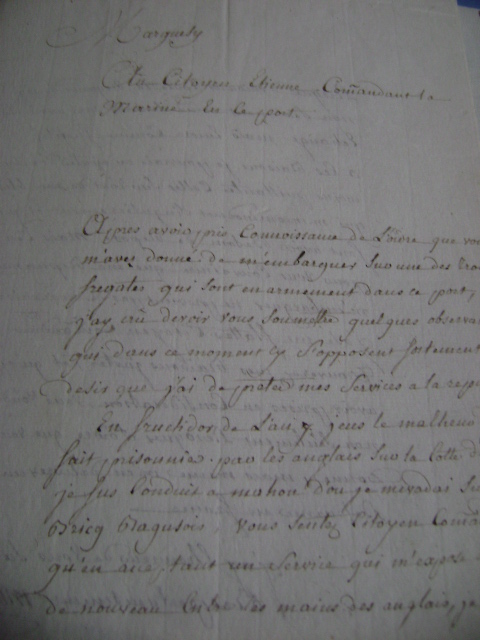 Marquesy
Au Citoyen Etienne Comandant la
Marine En Ce port.
Apres avoir pris Connoissance de L'ordre que vou
m'avez donné de m'embarquer Sur une des troi
fregates qui sont en armement dans ce port,
j'ay crû devoir vous Soumettre quelques observa
qui dans ce moment cy S'opposent fortement
desir que j'ai de preter mes Services a la repu
En fructidor de L'an 7 jeus le malheu
fait prisonnier par les anglais Sur la Cotte d
je fus Conduit a mahon d'ou je m'evadai Su
Bricq Ragusois, Vous Sentez Citoyen Coma
qu'en acceptant un Service qui m'expose
de nouveau Entre les mains des anglais, je